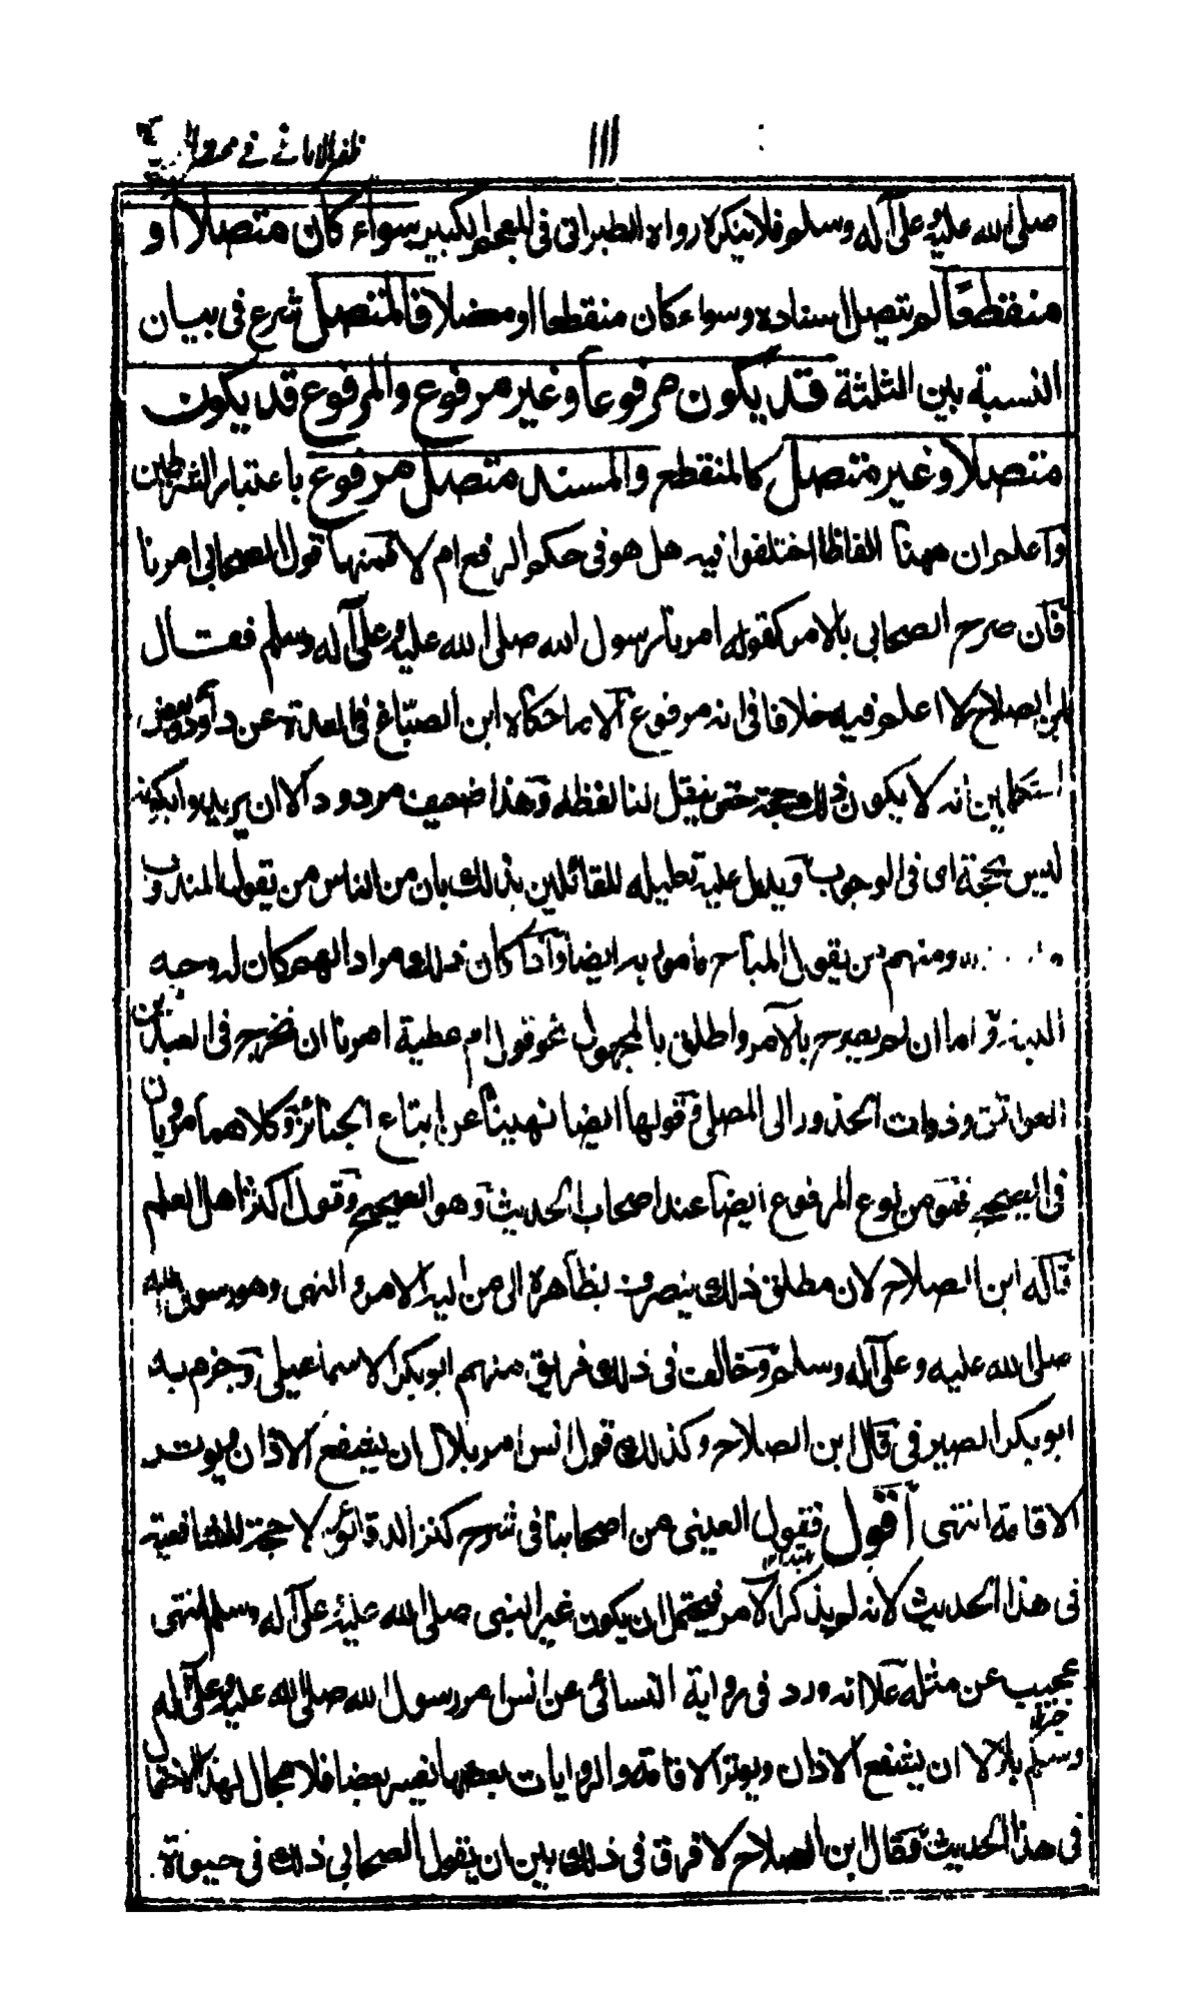 ظفر الاماني في مختصر
١١١
صلى الله عليه وعلى آله وسلم فلا ينكره رواه الطبراني في المعجم الكبير سواء كان متصلا أو
منقطعا لم يتصل اسناده وسواء كان منقطعا او معضلا فالمتصل شرع في بيان
النسبة بين الثلثة قد يكون مرفوعا وغير مرفوع والمرفوع قد يكون
متصلا وغير متصل كالمنقطع والمسند متصل مرفوع باعتبار الشرطين
واعلم ان ههنا الفاظا اختلفوا فيه هل هو في حكم الرفع ام لا فمنها قول الصحابي امرنا
فان صرح الصحابي بالامر كقوله امرنا رسول الله صلى الله عليه وعلى آله وسلم فقال
ابن الصلاح لا اعلم فيه خلافا في انه مرفوع الا ما حكاه ابن الصباغ في العدة عن داود وبعض
المتكلمين انه لا يكون ذلك حجة حتى ينقل لنا لفظه وهذا ضعيف مردود الا ان يريدوا بكونه
ليس بحجة اى في الوجوب ويدل عليه تعليله للقائلين بذلك بان من الناس من يقول المندوب
ومنهم من يقول المباح مأمور به ايضا واذا كان ذلك مرادهم كان له وجه
انتهى واما ان لم يصرح بالآمر واطلق بالمجهول نحو قول ام عطية امرنا ان نخرج في العيدين
العواتق وذوات الخدور الى المصلى وقولها ايضا نهينا عن اتباع الجنائز وكلاهما مرويان
في الصحيح فهو من نوع المرفوع ايضا عند اصحاب الحديث وهو الصحيح وقول اكثر اهل العلم
قاله ابن الصلاح لان مطلق ذلك ينصرف بظاهره الى من اليه الامر والنهي وهو رسول الله
صلى الله عليه وعلى آله وسلم وخالف في ذلك فريق منهم ابو بكر الاسماعيلي وجزم به
ابو بكر الصيرفي قال ابن الصلاح وكذلك قول انس امر بلال ان يشفع الاذان ويوتر
الاقامة انتهى اقول فقول العيني من اصحابنا في شرح كنز الدقائق لا حجة للشافعية
مبتدا ١٢
في هذا الحديث لانه لم يذكر الآمر فيحتمل ان يكون غير النبي صلى الله عليه وعلى آله وسلم انتهى
عجيب عن مثله علا انه ورد في رواية النسائي عن انس امر رسول الله صلى الله عليه وعلى آله
خبره
وسلم بلالا ان يشفع الاذان ويوتر الاقامة والروايات بعضها تفسر بعضا فلا مجال لهذا الاحتمال
في هذا الحديث فقال ابن الصلاح لا فرق في ذلك بين ان يقول الصحابي ذلك في حيوة